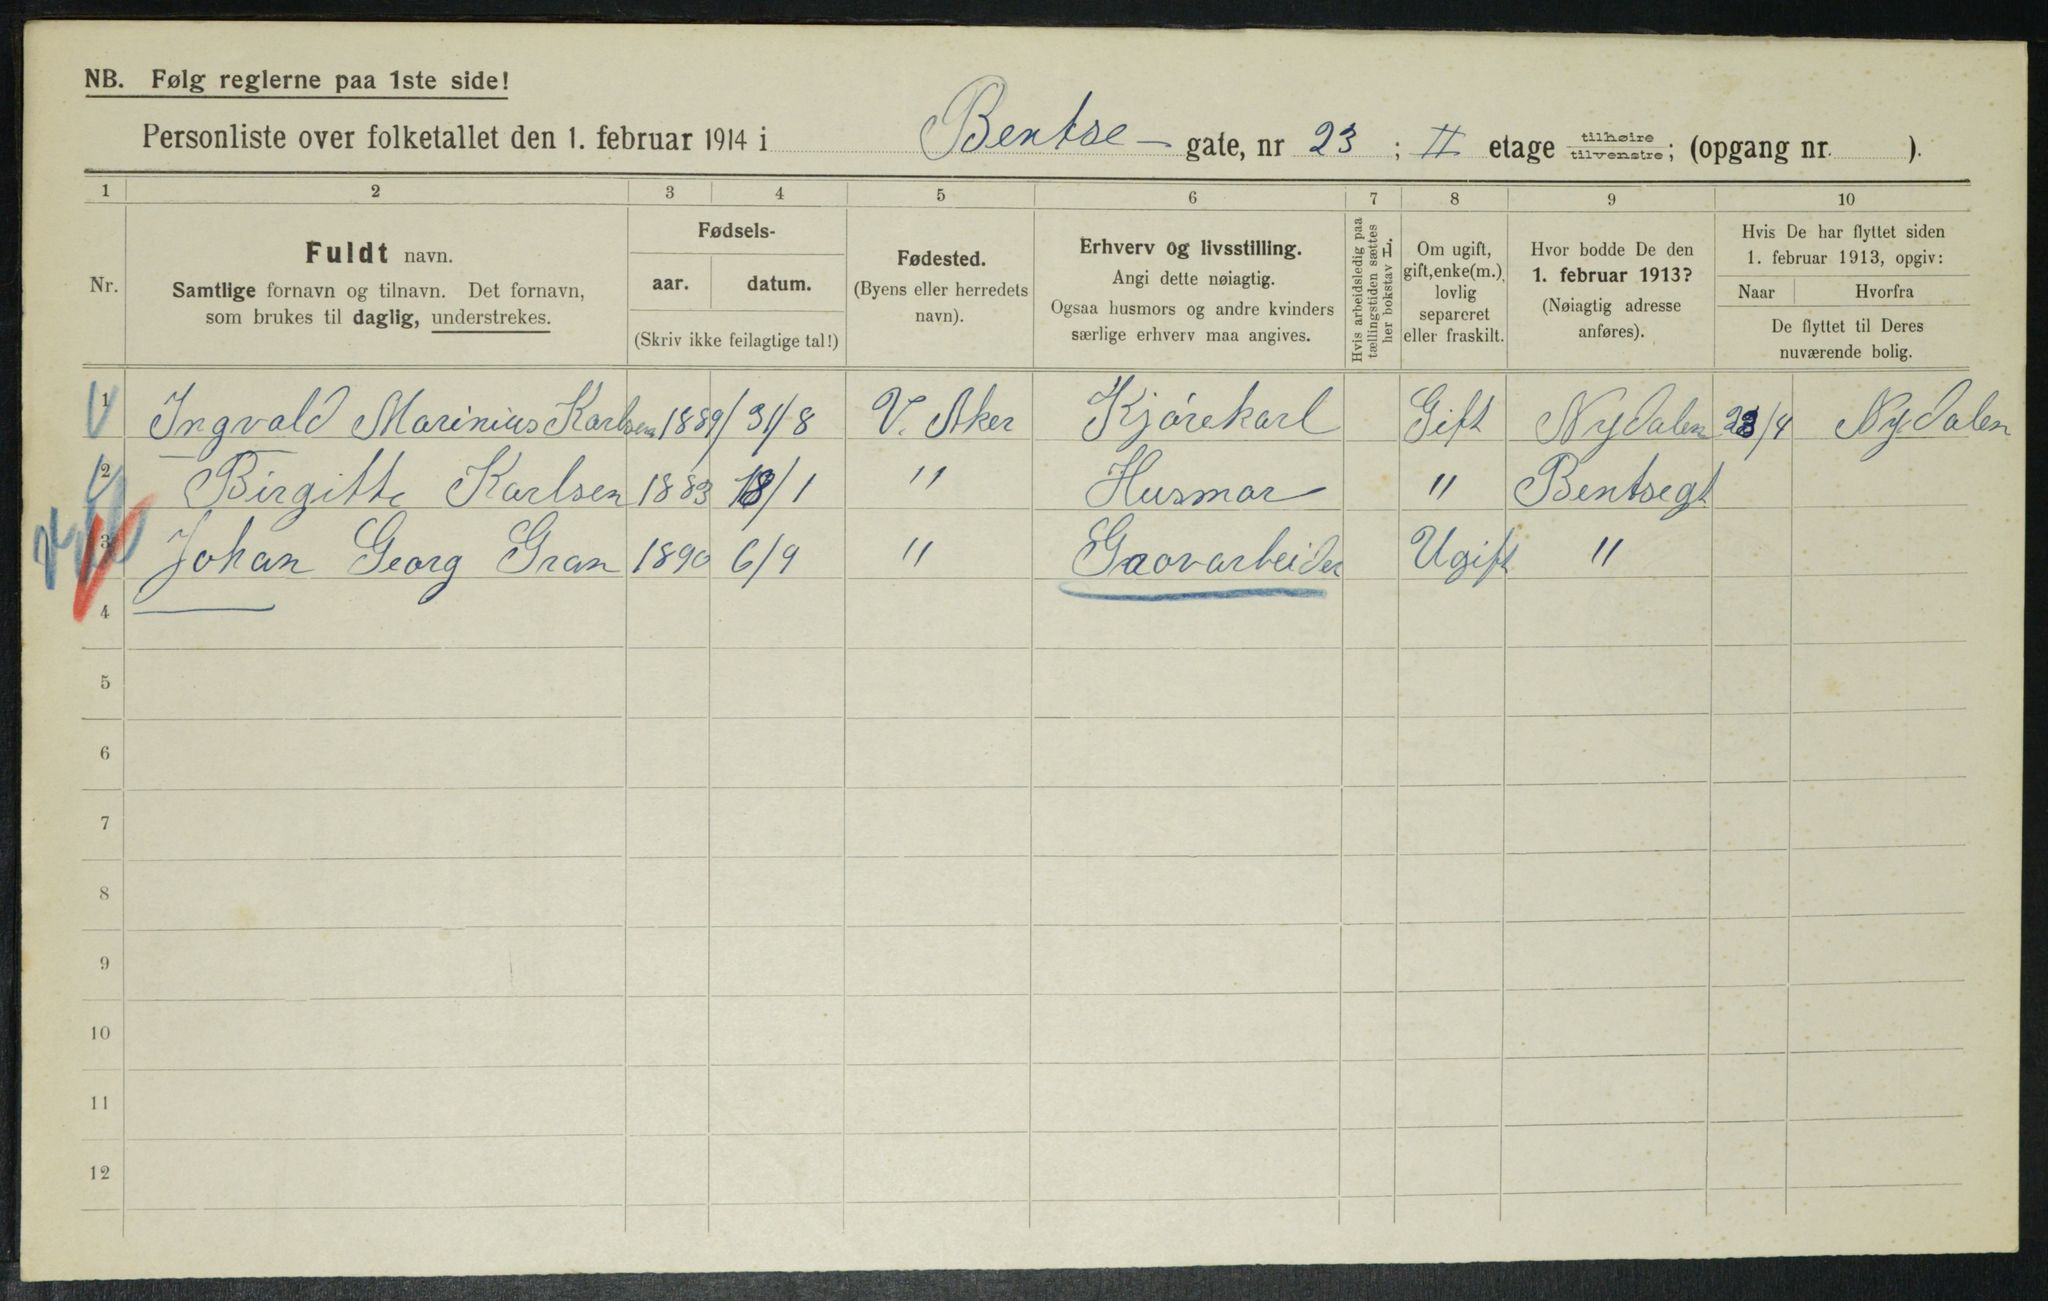 NB. Følg reglerne paa 1ste side!
Personliste over folketallet den 1. februar 1914 i Bentse- gate, nr 23 ; II etage tilhøire tilvenstre; (opgang nr. ).
1 2 3 4 5 6 7 8 9 10
Nr.
Fuldt navn.
Samtlige fornavn og tilnavn. Det fornavn,
som brukes til daglig, understrekes.
Fødsels-
aar. datum.
(Skriv ikke feilagtige tal!)
Fødested.
(Byens eller herredets
navn).
Erhverv og livsstilling.
Angi dette nøiagtig.
Ogsaa husmors og andre kvinders
særlige erhverv maa angives.
Hvis arbeidsledig paa
tællingstiden sættes
her bokstav L.
Om ugift,
gift, enke(m.),
lovlig
separeret
eller fraskilt.
Hvor bodde De den
1. februar 1913?
(Nøiagtig adresse
anføres).
Hvis De har flyttet siden
1. februar 1913, opgiv:
Naar Hvorfra
De flyttet til Deres
nuværende bolig.
1 Ingvald Marinius Karlsen 1889 31/8 V. Aker Kjørekarl Gift Nydalen /4 Nydalen
2 Birgitte Karlsen 1883 18/1 " Husmor " Bentsegt
3 Johan Georg Gran 1890 6/9 " Grovarbeider Ugift "
4
5
6
7
8
9
10
11
12